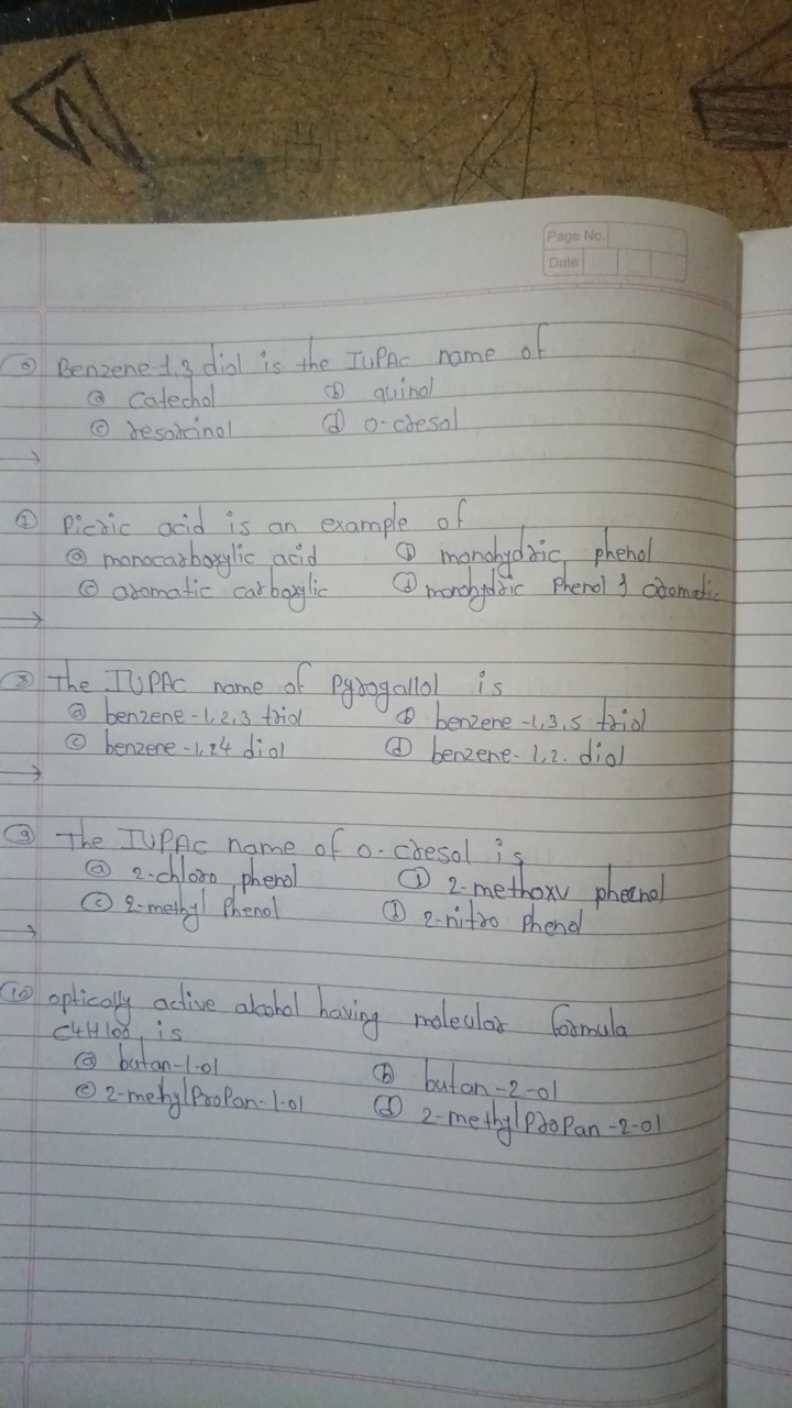 Page No.
Date
Benzene-1,3 diol is the IUPAC name of
(a) Catechol (b) quinol
(c) resorcinol (d) o-cresol
→
Picric acid is an example of
(a) monocarboxylic acid (b) monohydric phenol
(c) aromatic carboxylic (d) monohydric Phenol & aromatic
→
The IUPAC name of Pyrogallol is
(a) benzene-1,2,3 triol (b) benzene-1,3,5 triol
(c) benzene-1,24 diol (d) benzene-1,2. diol
→
(9) The IUPAC name of o-cresol is
(a) 2-chloro phenol (b) 2-methoxy phenol
(c) 2-methyl Phenol (d) 2-nitro Phenol
→
(10) optically active alcohol having molecular formula
C4H10O is
(a) butan-1-ol (b) butan-2-ol
(c) 2-methylProPan-1-ol (d) 2-methylProPan-2-ol